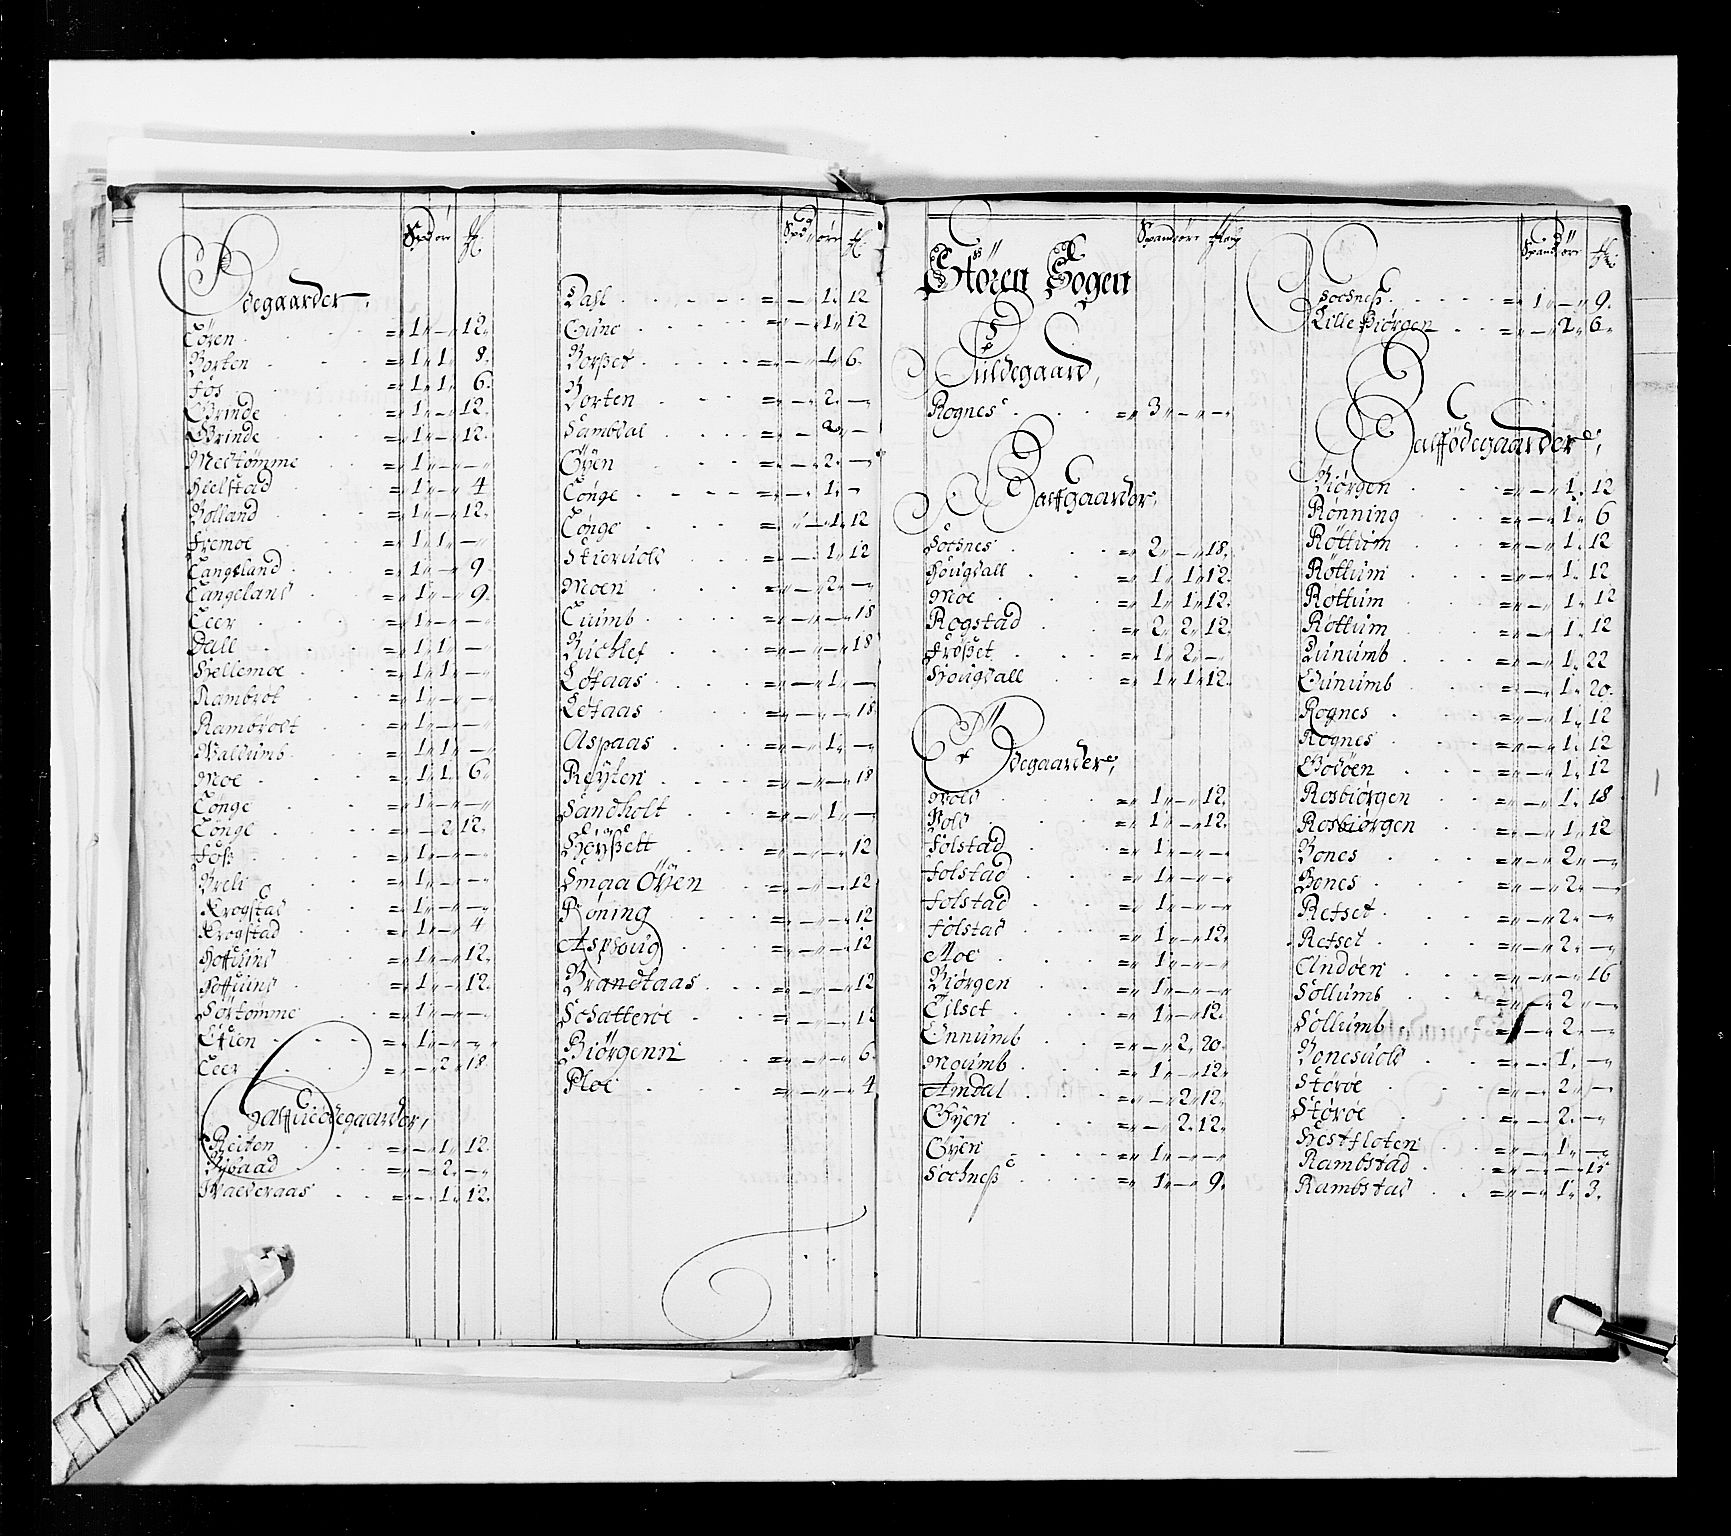 Spd ør ℔
Ødegaarder,
Løren = 1 – 12
Borten = 1 1 8
Fos = 1 1 6
Grinde = 1 – 12
Grinde = 1 – 12
Mestømme = 1 – –
Hielstad = 1 – 4
Volland = 1 – 12
Fremoe = 1 1 –
Langeland = 1 – 9
Langeland = 1 – 9
Leer = 1 – –
Dall = 1 1 –
Hellemoe = 1 1 –
Ramlrot = 1 – –
Ramlroet = 1 – –
Vallumb = 1 1 –
Moe = 1 1 6
Longe = 1 – –
Longe = – 2 12
Foss = 1 – –
Breli = 1 – –
Krogstad = 1 – –
Krogstad = 1 – 4
Hoffuind = 1 – 12
Hoffuind = 1 – 12
Sørtømme = 1 – –
Eluen = 1 – –
Leer = – 2 18
Halffueødegaarder,
Reiten = – 1 12
Nybaad = – 2 –
Kaeldraas = – 1 12
Spd øre ℔
Dahl = – 1 12
Gune = – 1 12
Borßet = – 1 6
Borten = – 2 –
Samdal = – 2 –
Øyen = – 2 –
Longe = – 1 –
Longe = – 1 12
Skieruold = – 1 12
Moen = – 2 –
Cuumb = – – 18
Buchlef = – – 18
Løfaas = – 1 –
Løfaas = – – 18
Aspaas = – 1 –
Røyten = – – 18
Sandholt = – 1 –
Høyßett = – – 12
Smaa Øÿen = – – 12
Røning = – – 12
Asphoug = – – 12
Brandtaas = – – 12
Schatterøe = – – 12
Biørgenn = – – 6
Ploe = – – 4
Spand øre Marg
Støren Sogen
Fuldegaard,
Rognes = 3 – –
Halfgaarder,
Sochnes = 2 – 18
Hougdall = 1 1 12
Moe = 1 1 12
Rogstad = 2 2 12
Frøßet = 1 2 –
Hougdall = 1 1 12
Ødegaarder,
Vold = 1 – 12
Vold = 1 – 12
Folstad = 1 – –
Folstad = 1 – –
Folstad = 1 – –
Folstad = 1 – 12
Moe = 1 – –
Biørgen = 1 – –
Tilset = 1 – 12
Ennumb = – 2 20
Moumb = 1 – 12
Amdal = – 2 12
Øyen = – 2 12
Øyen = 1 – –
Sochneß = 1 – 9
Spand ør ℔
Sochneß = 1 – 9
Lille Biørgen = – 2 6
Halffødegaarder,
Biørgen = – 1 12
Rønning = – 1 6
Røttum = – 1 12
Røttum = – 1 12
Røttum = – 1 12
Røttum = – 1 12
Lunumb = – 1 22
Gunumb = – 1 20
Rognes = – 1 12
Rognes = – 1 12
Godøen = – 1 12
Rosbiørgen = – 1 18
Rosbiørgen = – 1 12
Bones = – 2 –
Bones = – 2 –
Refset = – 2 –
Refset = – 2 –
Andøen = – – 16
Sollumb = – 2 –
Sollumb = – 2 –
Bonesuold = – 1 –
Størøe = – 2 –
Størøe = – 2 –
Hestfloten = – 1 –
Rambstad = – – 15
Rambstad = – 1 3